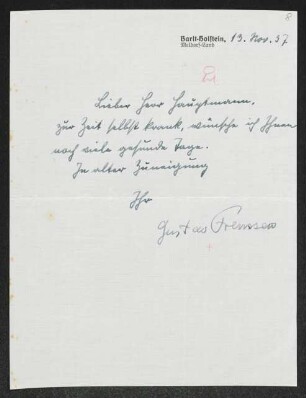 8
Barlt-Holstein, 13. Nov. 37
Meldorf-Land
Lieber Herr Hauptmann,
zur Zeit selbst krank, wünsche ich Ihnen
noch viele gesunde Tage.
In alter Zuneigung
Ihr
Gustav Frenssen